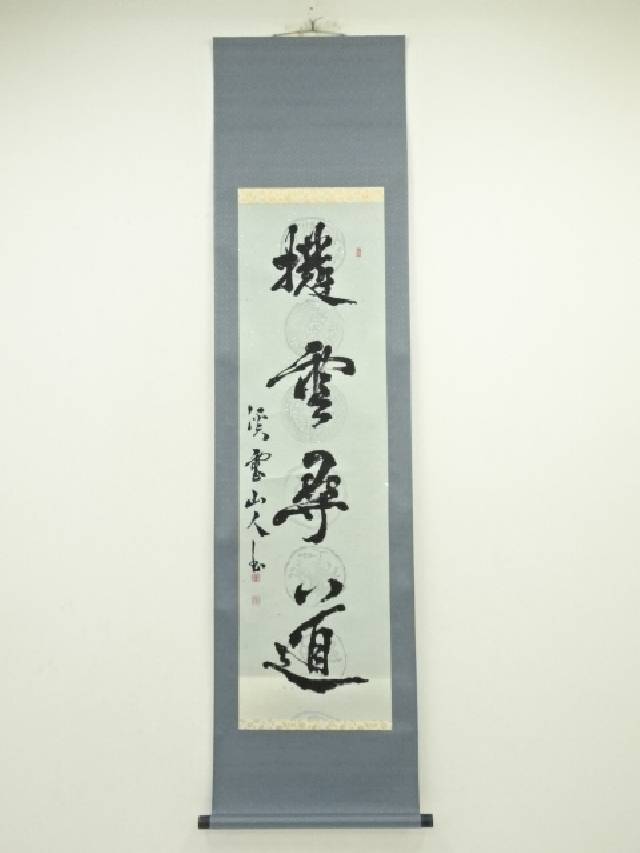 撥雲尋道
溪雲山人書